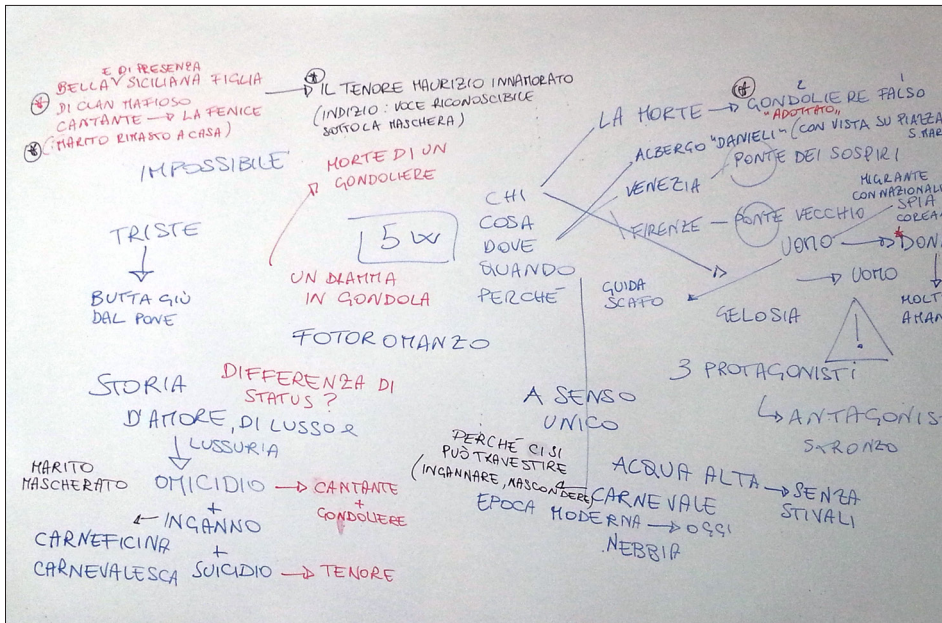 E DI PRESENZA
BELLA SICILIANA FIGLIA
DI CLAN MAFIOSO
CANTANTE → LA FENICE
(MARITO RIMASTO A CASA)
→ IL TENORE MAURIZIO INNAMORATO
(INDIZIO: VOCE RICONOSCIBILE
SOTTO LA MASCHERA)
IMPOSSIBILE
MORTE DI UN
GONDOLIERE
TRISTE
BUTTA GIÙ
DAL PONE
5 W
UN DRAMMA
IN GONDOLA
CHI
COSA
DOVE
QUANDO
PERCHÉ
2 1
LA MORTE → GONDOLIERE FALSO
"ADOTTATO"
ALBERGO "DANIELI" (CON VISTA SU PIAZZA
S. MAR
VENEZIA
PONTE DEI SOSPIRI
FIRENZE — PONTE VECCHIO
MIGRANTE
CONNAZIONAL
SPIA
COREA
UOMO → DON
→ UOMO
MOLT
AMAN
GUIDA
SCAFO
GELOSIA
!
3 PROTAGONISTI
↳ ANTAGONIS
STRONZO
FOTOROMANZO
STORIA
D'AMORE, DI LUSSO e
LUSSURIA
DIFFERENZA DI
STATUS?
MARITO
MASCHERATO
OMICIDIO → CANTANTE
+
GONDOLIERE
+
← INGANNO
CARNEFICINA
CARNEVALESCA
+
SUICIDIO → TENORE
A SENSO
UNICO
PERCHÉ CI SI
PUÒ TRAVESTIRE
(INGANNARE, NASCONDERE)
← CARNEVALE
ACQUA ALTA → SENZA
STIVALI
EPOCA MODERNA → OGGI
NEBBIA